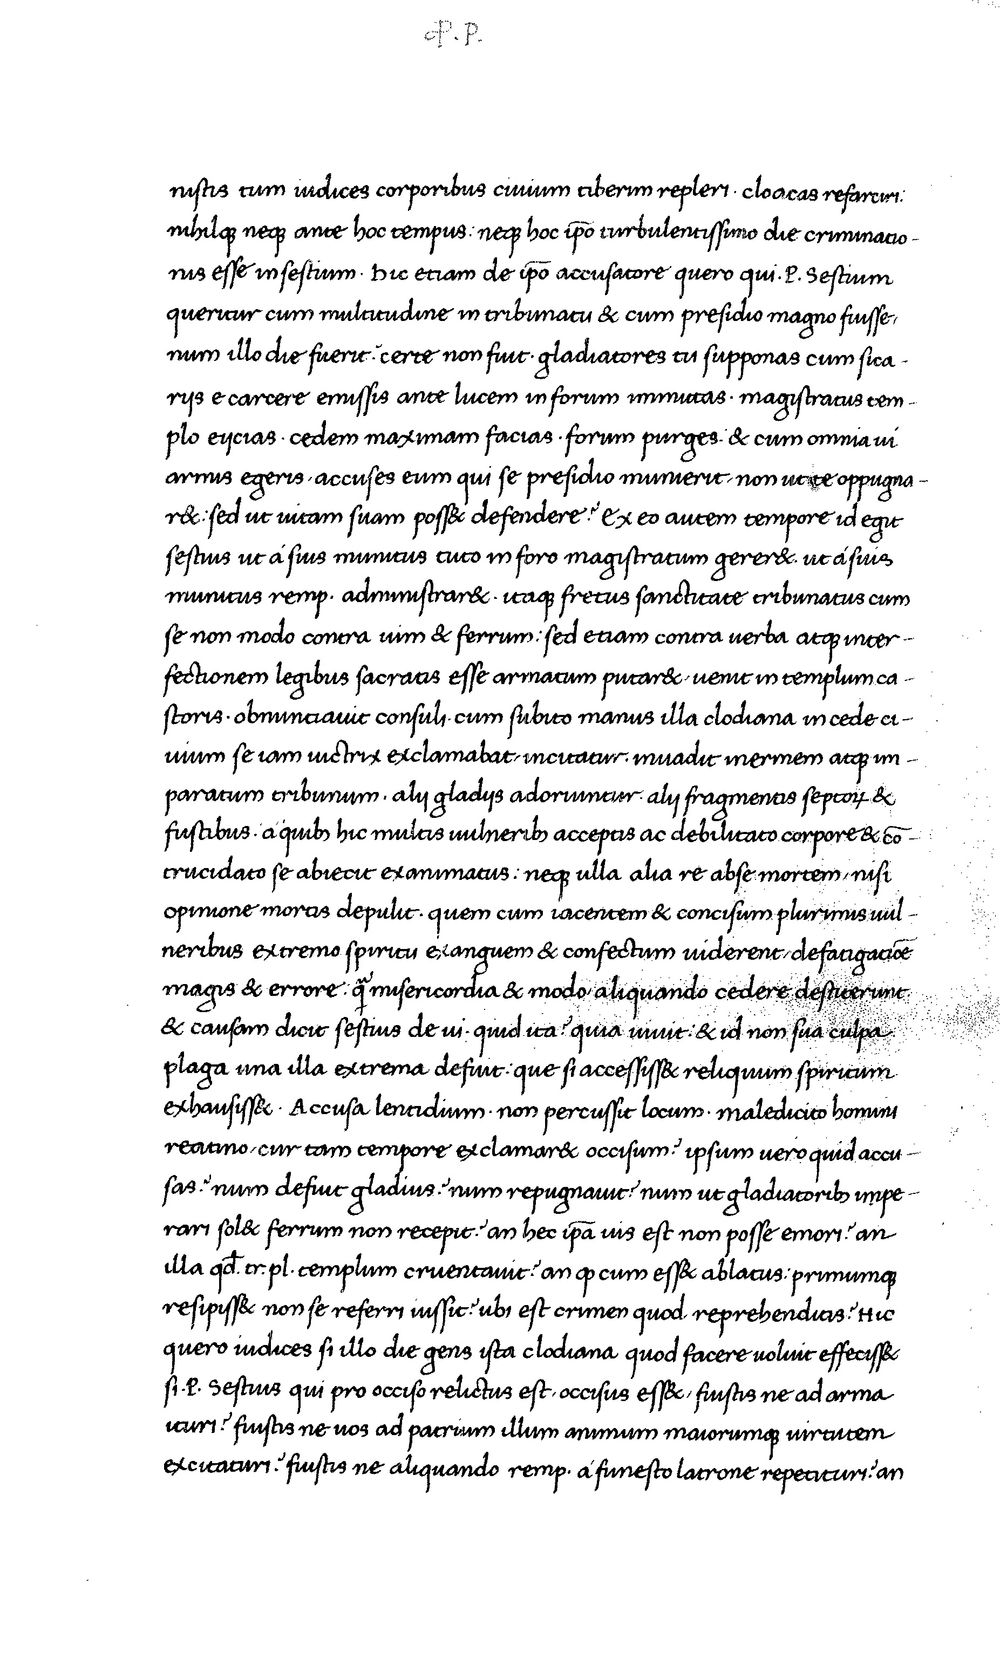 P. P.
nistis tum iudices corporibus ciuium tiberim repleri · cloacas refarciri:
nihilq neq ante hoc tempus: neq hoc ip̄o turbulentissimo die criminatio-
nis esse in sestium · Hic etiam de ip̄o accusatore quero qui · P. Sestium
queritur cum multitudine in tribunatu & cum presidio magno fuisse,
num illo die fuerit? certe non fuit · gladiatores tu supponas cum sica-
rijs e carcere emissis ante lucem in forum immitas · magistratus tem-
plo eijcias · cedem maximam facias · forum purges: & cum omnia ui
armis egeris, accuses eum qui se presidio munierit, non ut te oppugna-
r&: sed ut uitam suam poss& defendere? Ex eo autem tempore id egit
sestius ut á suis munitus tuto in foro magistratum gerer& · ut á suis
munitus remp · administrar& · itaq fretus sanctitate tribunatus cum
se non modo contra uim & ferrum: sed etiam contra uerba atq inter-
fectionem legibus sacratis esse armatum putar&, uenit in templum ca-
storis · obnuntiauit consuli · cum subito manus illa clodiana in cede ci-
uium se iam uictrix exclamabat, incitatur · inuadit inermem atq im-
paratum tribunum · alij gladijs adoriuntur · alij fragmentis septoꝝ &
fustibus · a quib hic multis uulnerib acceptis ac debilitato corpore & cō-
trucidato se abiecit exanimatus: neq ulla alia re ab se mortem, nisi
opinione mortis depulit · quem cum iacentem & concisum plurimis uul-
neribus extremo spiritu exanguem & confectum uiderent, defatigatiōe
magis & errore · q̄ misericordia & modo aliquando cedere destiterunt
& causam dicit sestius de ui · quid ita? quia uiuit: & id non sua culpa
plaga una illa extrema defuit: que si accessiss& reliquum spiritum
exhausiss& · Accusa lentidium · non percussit locum · maledicito homini
reatino, cur tam tempore exclamar& occisum? ipsum uero quid accu-
sas? num defuit gladius? num repugnauit? num ut gladiatorib impe-
rari sol& ferrum non recepit? an hec ip̄a uis est non posse emori? an
illa qđ · tr · pl · templum cruentauit? an ꝙ cum ess& ablatus: primumq
resipiss& non se referri iussit? ubi est crimen quod reprehenditis? Hic
quero iudices si illo die gens ista clodiana quod facere uoluit effeciss&
si · P. Sestius qui pro occiso relictus est, occisus ess&, fuistis ne ad arma
ituri? fuistis ne uos ad patrium illum animum maiorumq uirtutem
excitaturi? fuistis ne aliquando remp · á funesto latrone repetituri? an